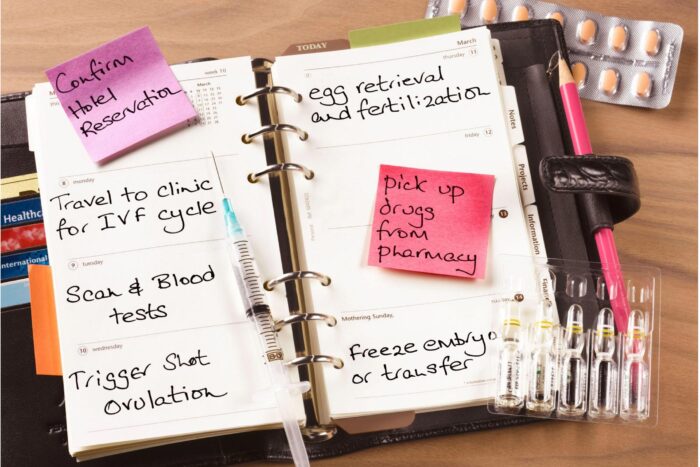 Confirm
Hotel
Reservation
week 10
March
8 monday
Travel to clinic
for IVF cycle
9 tuesday
Scan & Blood
tests
10 wednesday
Trigger Shot
Ovulation
Healthcare
International
TODAY
March
thursday 11
egg retrieval
and fertilization
friday 12
pick up
drugs
from
pharmacy
13
Mothering Sunday,
Freeze embryo
or transfer
Notes
Projects
Information
Finance